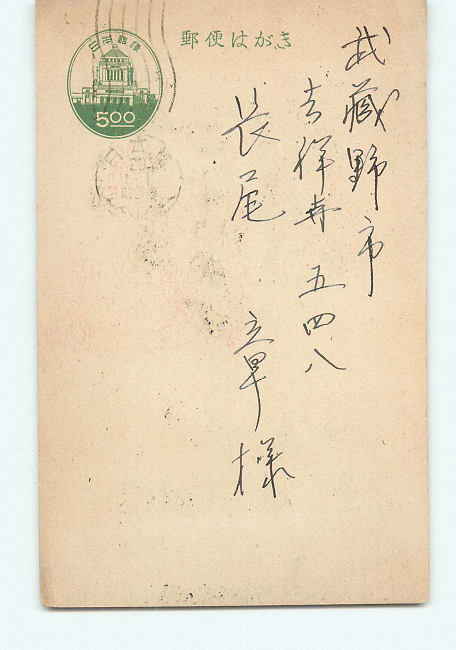 郵便はがき
日本郵便
5.00
武蔵野市
吉祥寺 五四八
長尾 章様